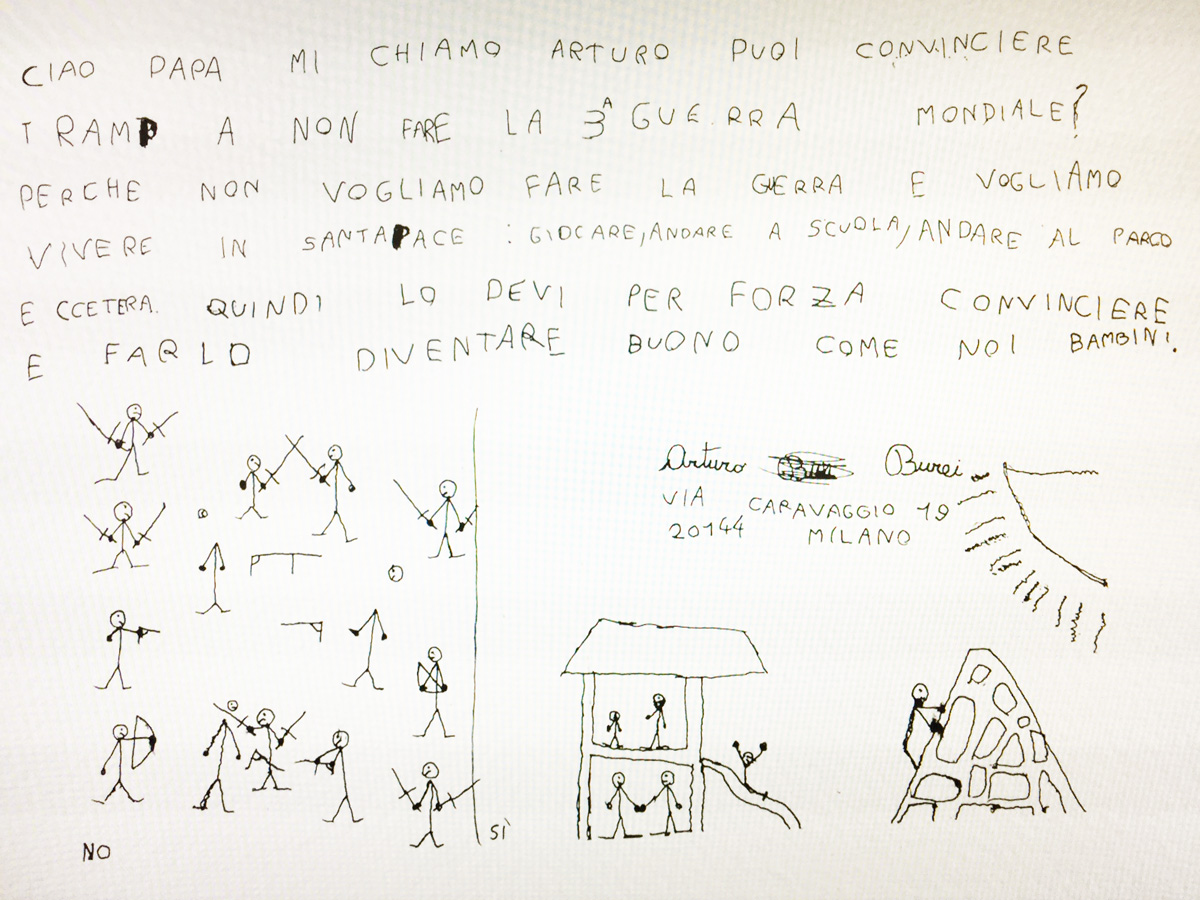 CIAO PAPA MI CHIAMO ARTURO PUOI CONVINCIERE
TRAMP A NON FARE LA 3A GUERRA MONDIALE?
PERCHE NON VOGLIAMO FARE LA GUERRA E VOGLIAMO
VIVERE IN SANTA PACE : GIOCARE, ANDARE A SCUOLA, ANDARE AL PARCO
ECCETERA. QUINDI LO DEVI PER FORZA CONVINCIERE
E FARLO DIVENTARE BUONO COME NOI BAMBINI.
Arturo Burei
VIA CARAVAGGIO 19
20144 MILANO
NO
SÌ